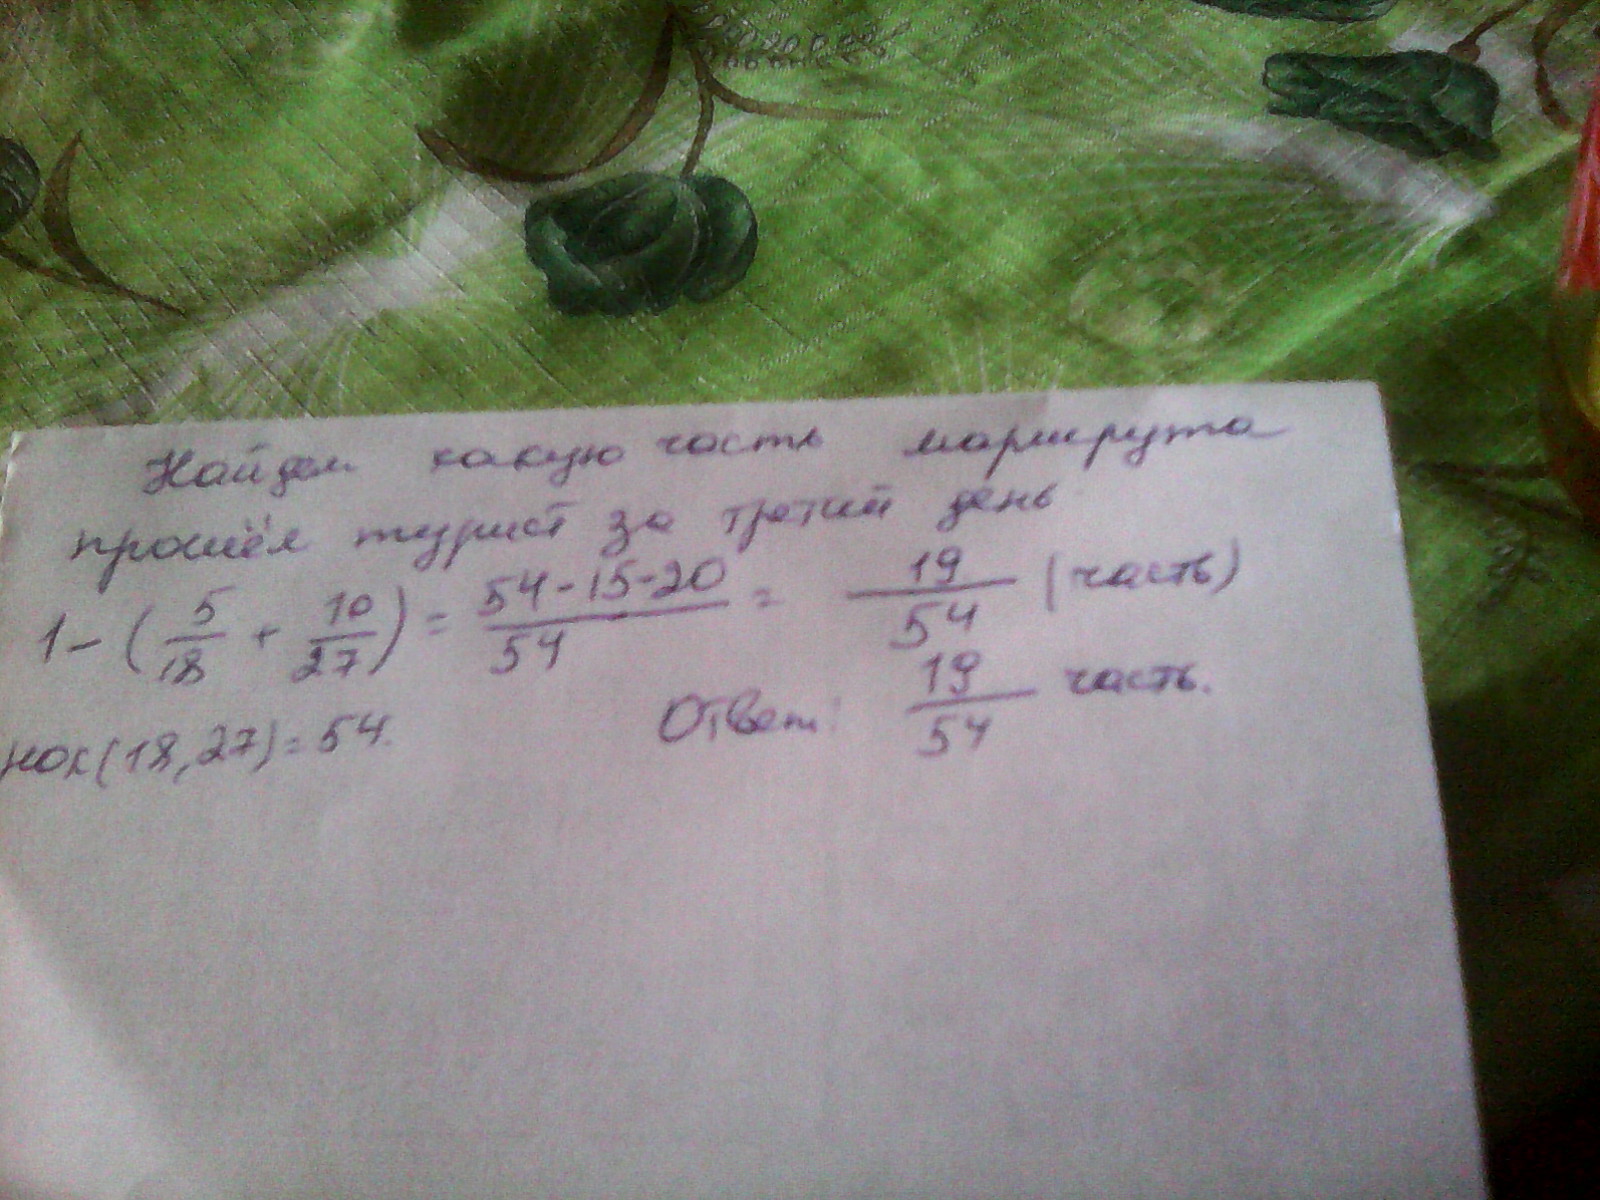 Найдем какую часть маршрута
прошёл турист за третий день
1-(5/18 + 10/27) = 54-15-20/54 = 19/54 (часть)
НОК(18,27)=54.
Ответ: 19/54 часть.